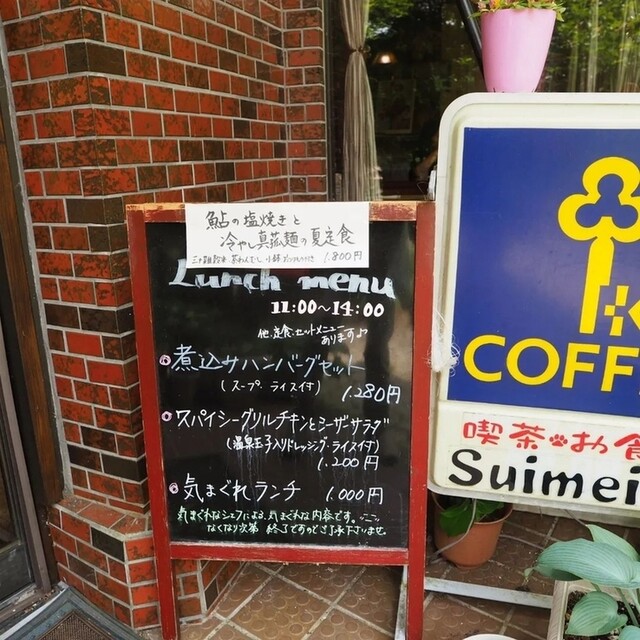 鮎の塩焼きと
冷やし真菰麺の夏定食
1.800円
Lunch menu
11:00〜14:00
他、定食、セットメニュー
あります♪
煮込サハンバーグセット
(スープ、ライス付)
1.280円
スパイシーグリルチキンとシーザーサラダ
(温泉玉子入りドレッシング・ライス付)
1.200円
気まぐれランチ 1.000円
気まぐれなシェフによる、気まぐれな内容です。
なくなり次第 終了ですのでご了承下さいませ。
COFF
喫茶 お食
Suimei